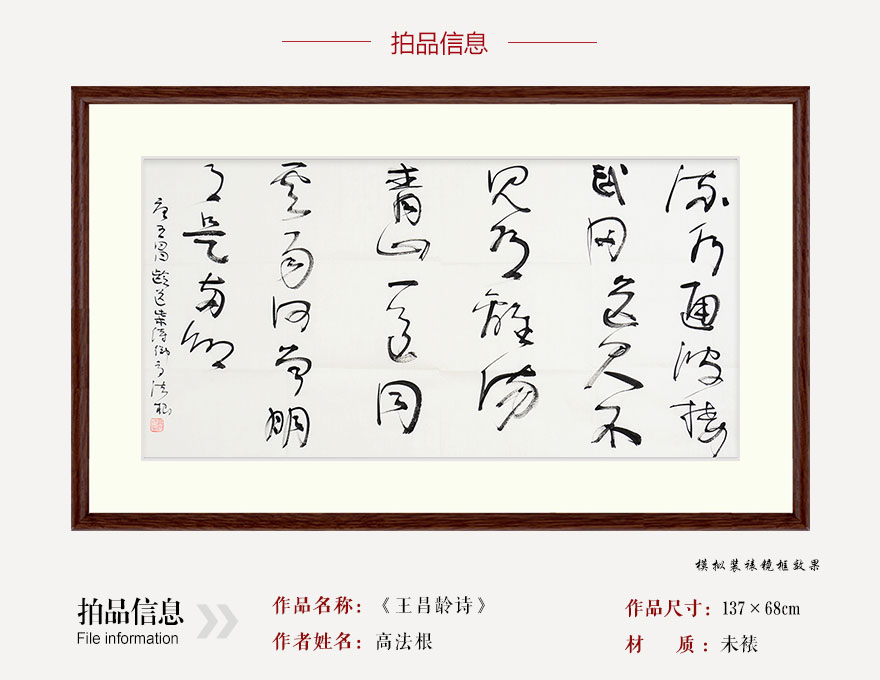 拍品信息
流水通波接
武岡送君不
覺有離傷
青山一道同
雲雨何曾明
月是兩鄉
唐王昌齡送柴侍御高法根
模拟装裱镜框效果
拍品信息
File information
作品名称：《王昌龄诗》
作者姓名：高法根
作品尺寸：137×68cm
材 质：未裱